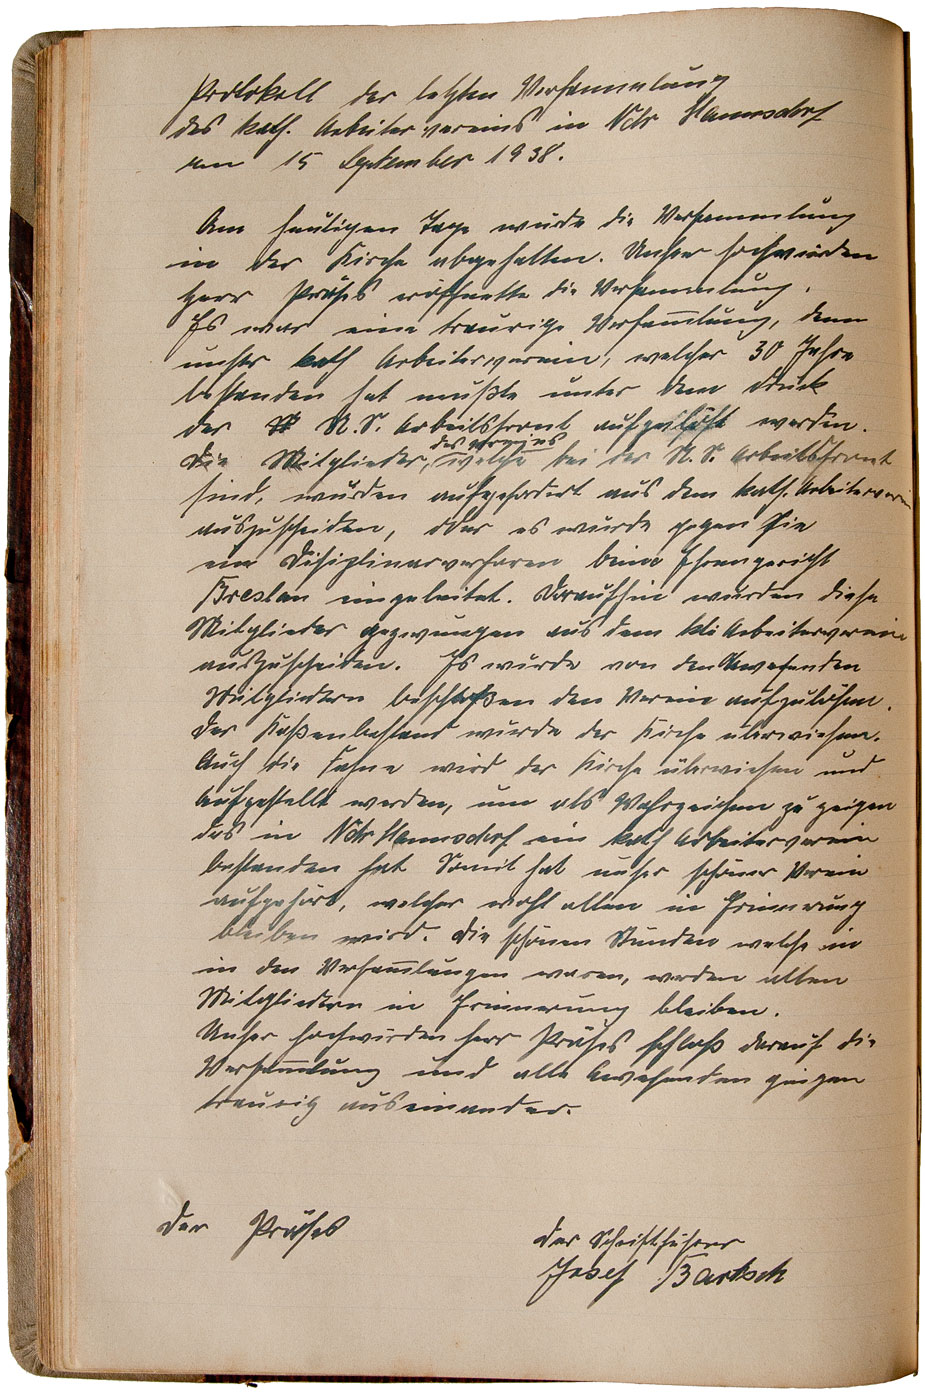 Protokoll der letzten Versammlung
des kath. Arbeitervereins in Ndr Hannsdorf
am 15 September 1938.
Am heutigen Tage wurde die Versammlung
in der Kirche abgehalten. Unser hochwürden
Herr Präses eröffnette die Versammlung.
Es war eine traurige Versam̅lung, denn
unser kath Arbeiterverein, welcher 30 Jahre
bestanden hat mußte unter dem druck
der N.S. Arbeitsfront aufgelößt werden.
des Vereins
Die Mitglieder, welche bei der N.S. Arbeitsfront
sind, wurden aufgefordert aus dem kath. Arbeiterverein
auszuscheiden, oder es wurde gegen Sie
ein Disiplinarverfaren beim Ehrengericht
Breslau eingeleitet. Daraufhin wurden diese
Mitglieder gezwungen aus dem Arbeiterverein
auszuscheiden. Es wurde von den Anwesenden
Mitgliedern beschloßen den Verein aufzulösen.
Der Kaßenbestand wurde der Kirche überwiesen.
Auch die Fahne wird der Kirche überwiesen und
Aufgestellt werden, um als Wahrzeichen zu zeigen
das in Ndr Hannsdorf ein kath Arbeiterverein
bestanden hat Somit hat unser schöner Verein
aufgehört, welcher wohl allen in Erinnerung
bleiben wird. Die schönen Stunden welche in
in den Versam̅lungen waren, werden allen
Mitgliedern in Erinnerung bleiben.
Unser hochwürden Herr Präses schloß darauf die
Versam̅lung und alle Anwesenden gingen
traurig auseinander.
Der Präses
Der Schriftführer
Josef Bartsch